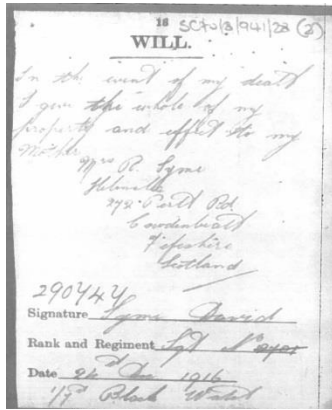 18 SC70/8/941/28 (2)
WILL.
In the event of my death
I give the whole of my
property and effects to my
Mother
Mrs R. Syme
Helenville
Perth Rd
Cowdenbeath
Fifeshire
Scotland
290744
Signature Syme David
Rank and Regiment Sgt No
Date Dec 1916
1/7th Black Watch